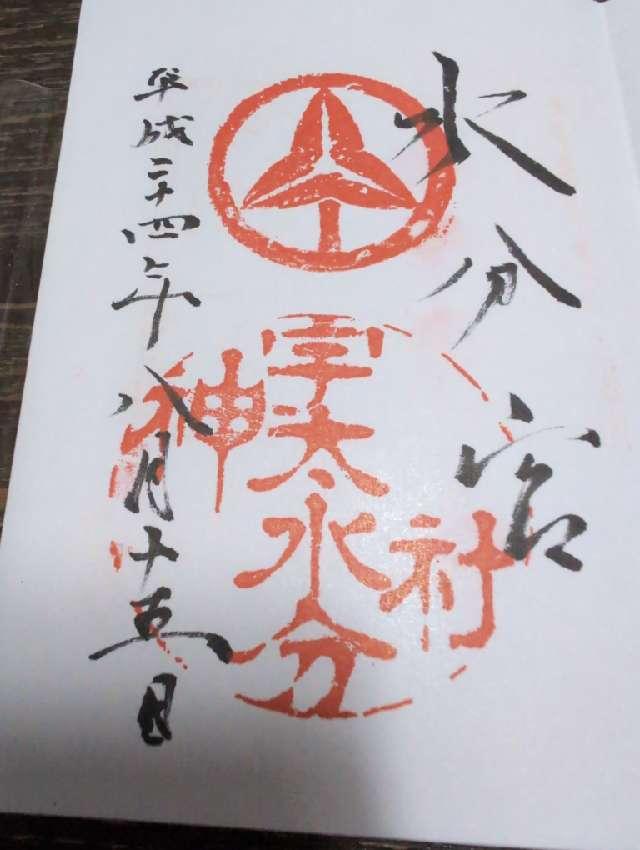 水分宮
宇太水分
神社
平成二十四年八月十五日